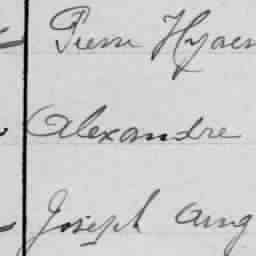 Pierre Hyacin
Alexandre
Joseph Aug